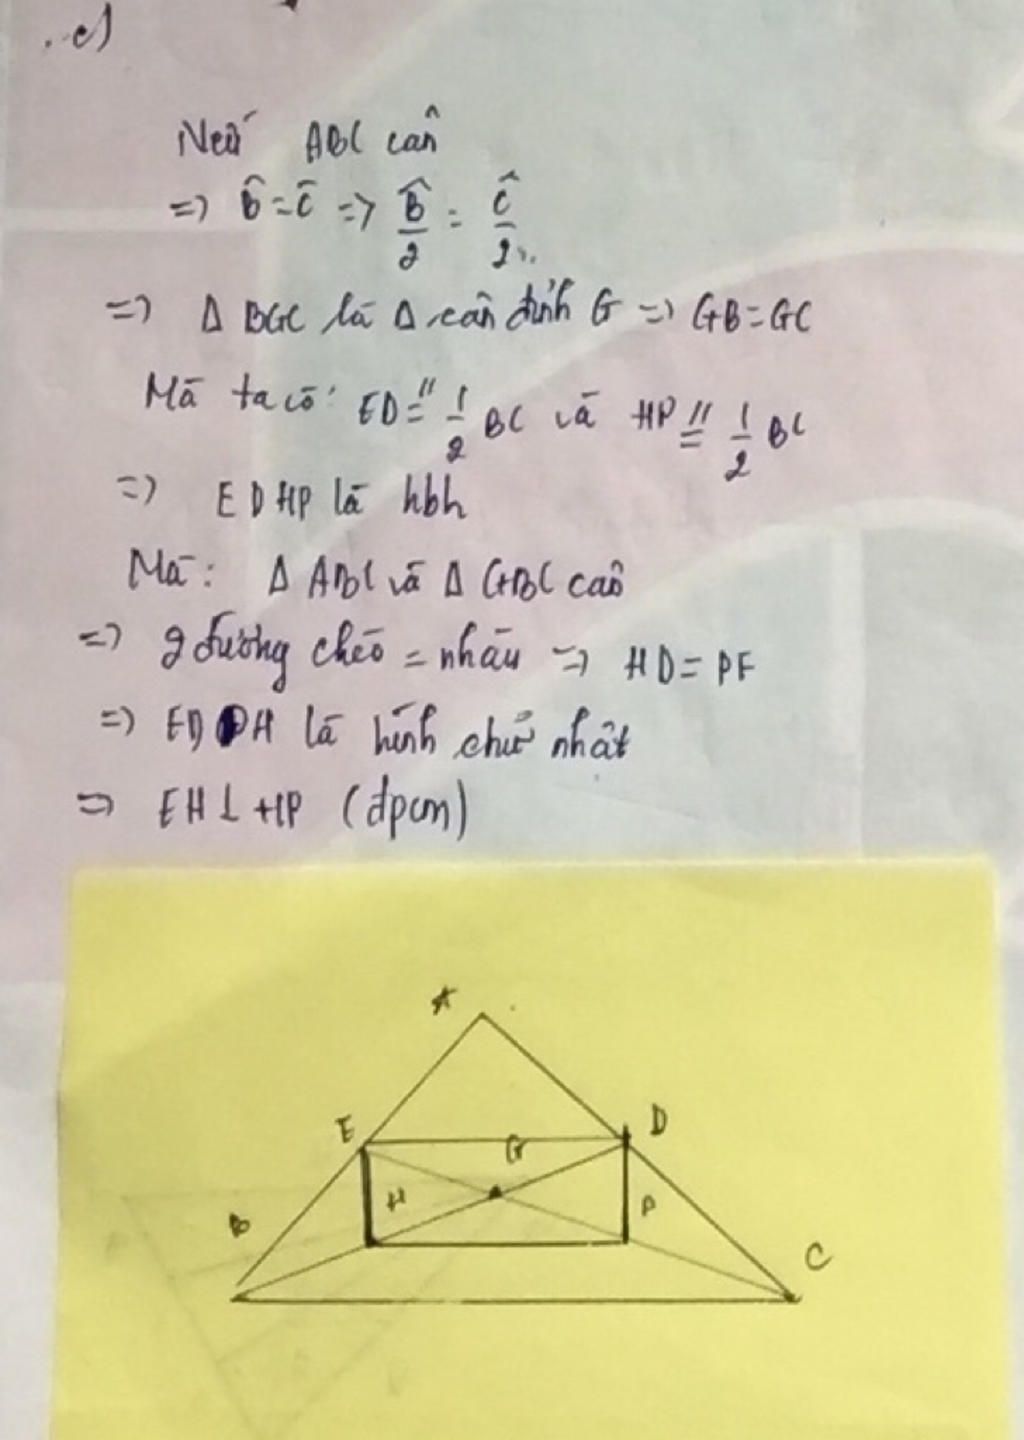 .c)
Nếu ABC cân
=> B̂ = Ĉ => B̂/2 = Ĉ/2
=> Δ BGC là Δ cân đỉnh G => GB = GC
Mà ta có: ED // = 1/2 BC và HP // = 1/2 BC
=> EDHP là hbh
Mà: Δ ABC và Δ GBC cân
=> 2 đường chéo = nhau => HD = PE
=> EDPH là hình chữ nhật
=> EH ⊥ HP (đpcm)
A
E D
G
H P
B
C